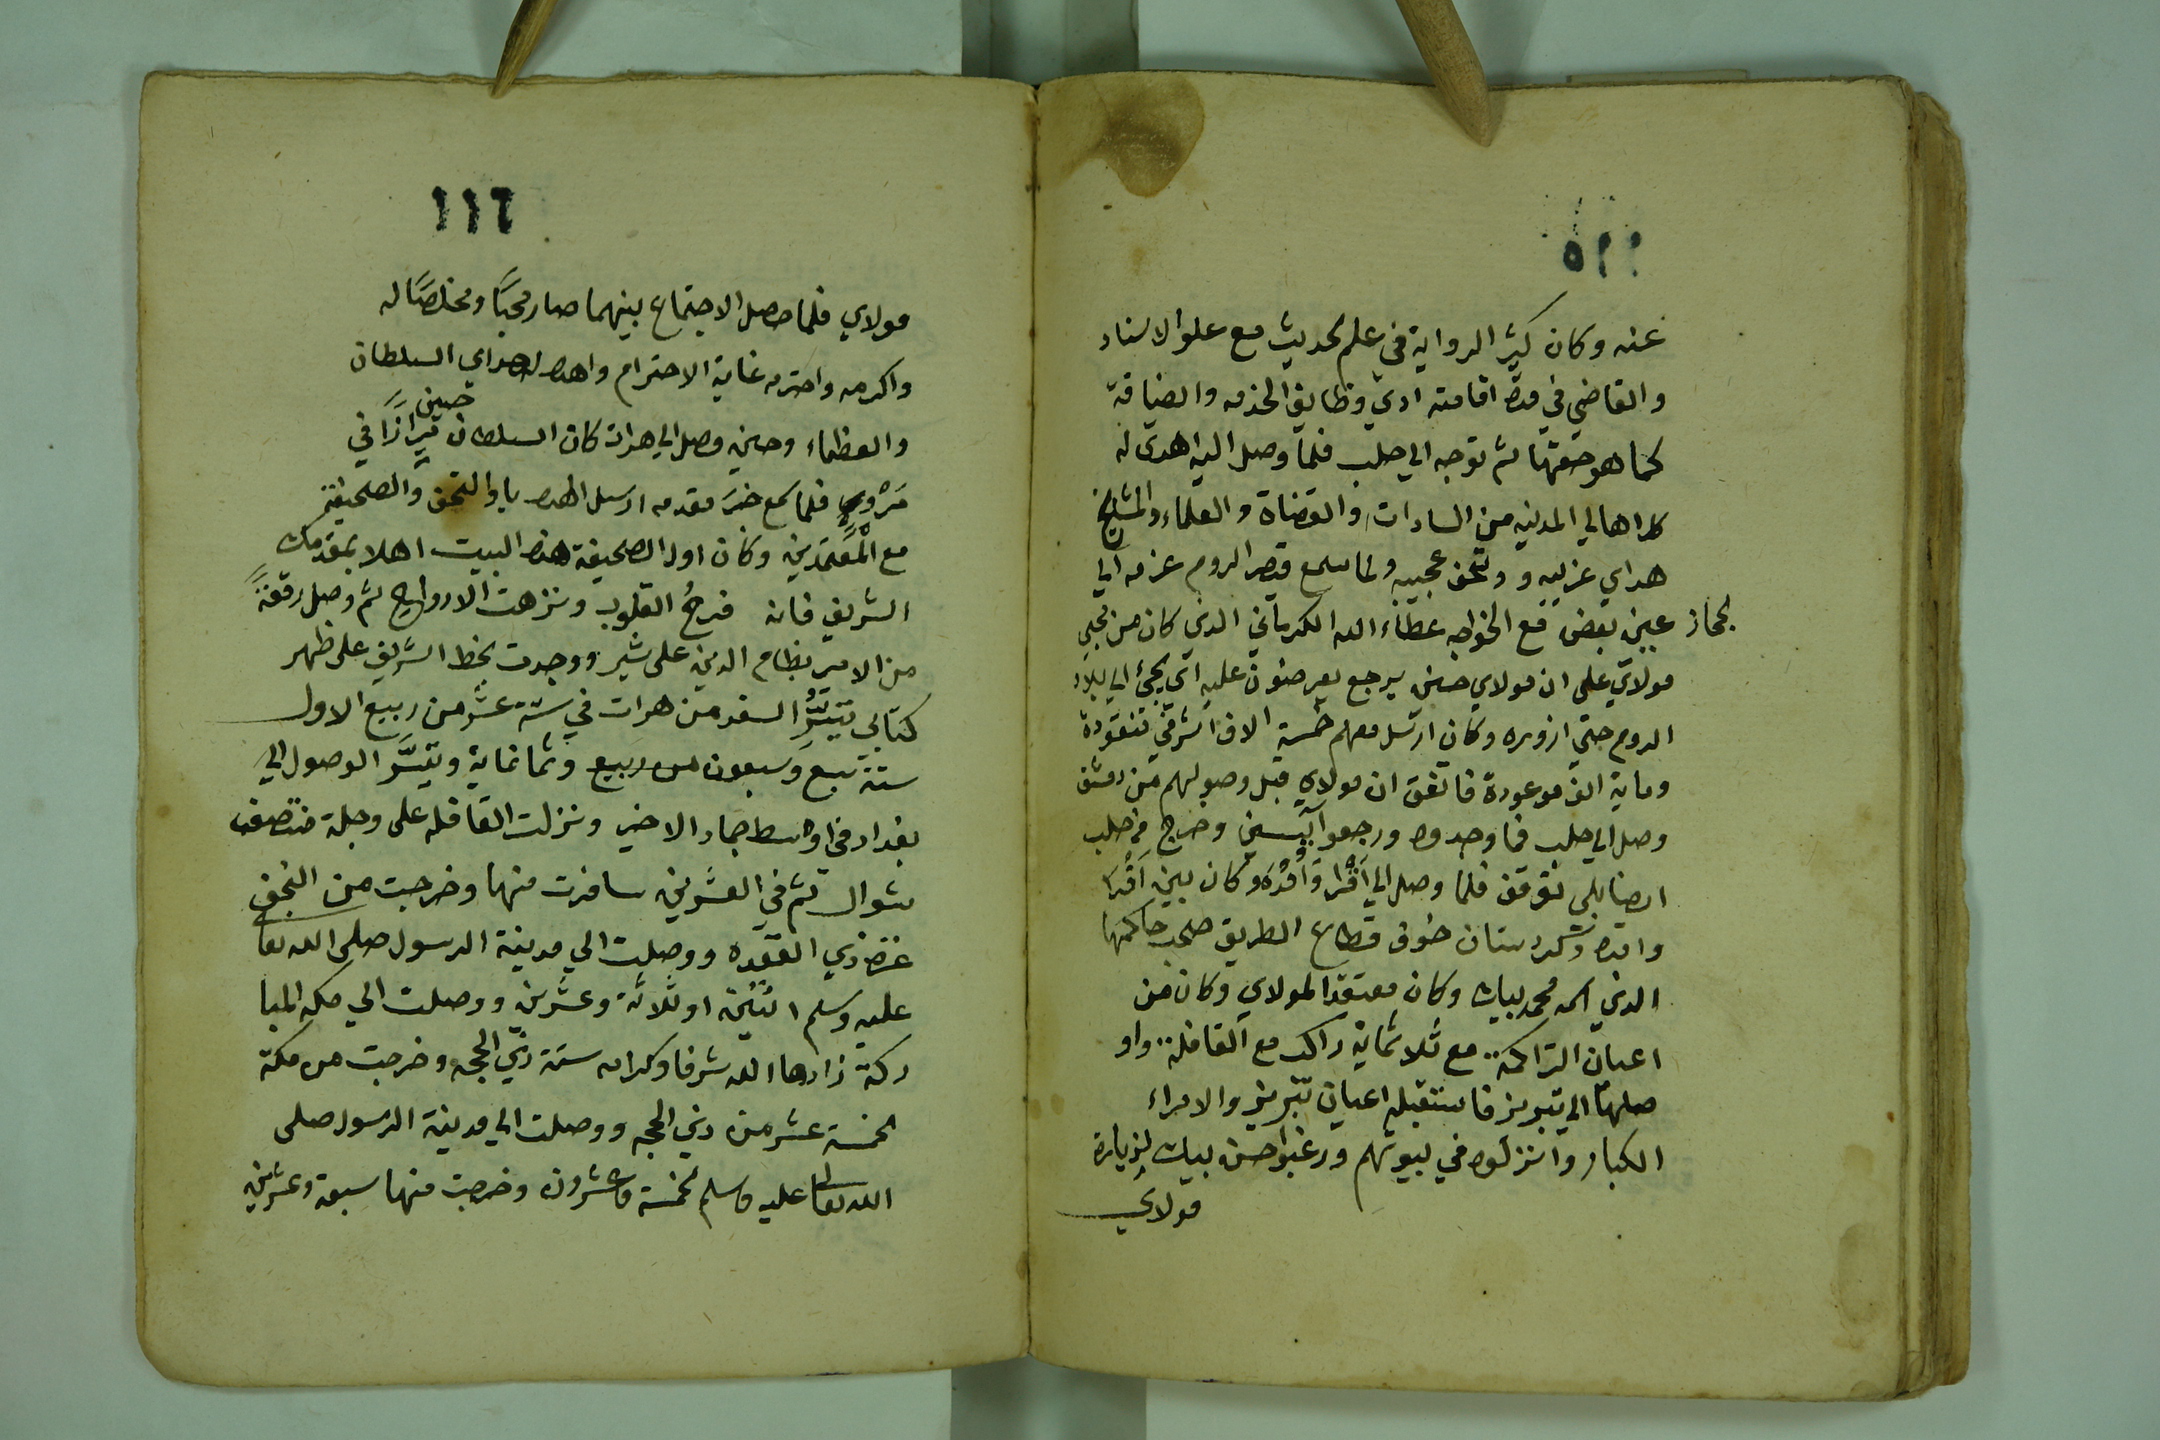 عنه وكان كثير الرواية في علم الحديث مع علو الاسناد
والقاضي في مدة اقامته ادي وظايف الخدمه والضيافة
كما هو حقها ثم توجه الي حلب فلما وصل اليه اهدي له
كل اهالي المدينه من السادات والقضاة والعلماء والمشايخ
هداي غريبه و وتحف عجيبه ولما سمع قيصر الروم عزمه الي
الحجاز عين بعض مع الخواجه عطاء الله الكرماني الذي كان من محبي
مولاي علي ان مولاي حين يرجع يعرضون عليه اي يجئ الي بلاد
الروم حتي ازوره وكان ارسل معهم خمسة الاف اشرفي منقودة
وماية الف موعودة فاتفق ان مولاي قبل وصولهم من دمشق
وصل الي حلب فما وجدوه ورجعوا آيسين وخرج من حلب
ايضا بلي توقف فلما وصل الي وكان بين
وكردستان خوف قطاع الطريق حاكمها
الذي اسمه محمد بيك وكان معتقدا لمولاي وكان من
اعيان التراكمة مع ثلاثماية راكب مع القافلة واو
صلها الي تبريز فاستقبله اعيان تبريز والامراء
الكبار وانزلوه في بيوتهم ورغبوا حسن بيك لزيارة
مولاي
١١٦
مولاي فلما حصل الاجتماع بينهما صار محبًا ومخلصًا له
واكرمه واحترمه غاية الاحترام واهداه هداي السلطان
والعظماء وحين وصل الي هرات كان السلطان حسين في
فلما سمع خبر مقدمه ارسل اليه والتحف والصحيفة
مع المعتمدين وكان اول الصحيفة هذه البيت اهلا بمقدمك
الشريف فانه فرح القلوب ونزهت الارواح ثم وصل رقعةً
من الامير نظام الدين علي شير ووجدت بخط الشريف علي ظهر
كتابي تيسّر السفر من هرات في ستة عشر من ربيع الاول
سنة سبع وسبعون من ربيع وثمانماية وتيسّر الوصول الي
بغداد في اوسط جماد الاخير ونزلت القافله علي دجلة منتصف
شوال ثم في العشرين سافرت منها وخرجت من النجف
غرة ذي القعده ووصلت الي مدينة الرسول صلي الله تعا
عليه وسلم اثنين او ثلاثة وعشرين ووصلت الي مكه المبا
ركة زادها الله شرفا وكرامه ستة ذي الحجه وخرجت من مكة
الخمسة عشر من ذي الحجه ووصلت الي مدينة الرسول صلي
الله تعالي عليه وسلم لخمسة وعشرون وخرجت منها سبعة وعشرين